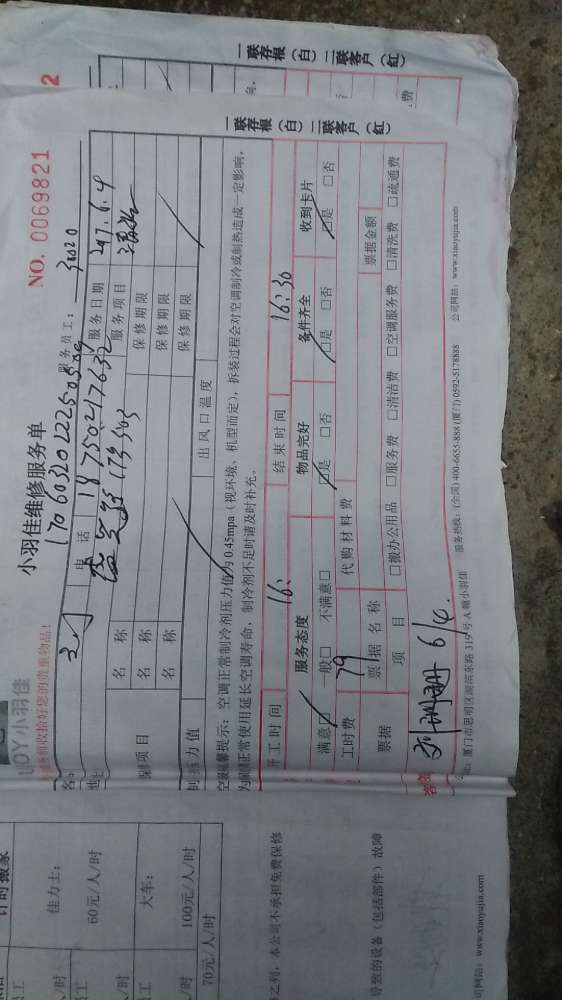 UOY小羽佳
收拾好您的贵重物品!
小羽佳维修服务单
NO. 0069821
服务员工:
电话 18750217632
服务日期 2017.6.4
服务项目
名 称
保修期限
名 称
保修期限
名 称
保修期限
项目
压力值
出风口温度
提示:空调正常制冷剂压力值为0.45mpa(视环境、机型而定),拆装过程会对空调制冷或制热造成一定影响,
正常使用延长空调寿命,制冷剂不足时请及时补充。
开工时间 16:
结束时间 16:30
服务态度
物品完好
备件齐全
收到卡片
满意□ 一般□ 不满意□
□是 □否
□是 □否
□是 □否
工时费 79
代购材料费
票据
票据名称
票据金额
项目
□搬办公用品 □服务费 □清洁费 □空调服务费 □清洗费 □疏通费
6/4.
厦门市思明区湖滨东路319号A幢小羽佳 服务热线:(全国)400-6655-888 (厦门)0592-5178888 公司网站:www.xiaoyujia.com
一联存根(白)二联客户(红)
一联存根(白)二联客户(红)
2
费
计时搬家
佳力士:
60元/人/时
大车:
100元/人/时
70元/人/时
之列,本公司不承担免费保修
导致的设备(包括部件)故障
公司网站:www.xiaoyujia.com